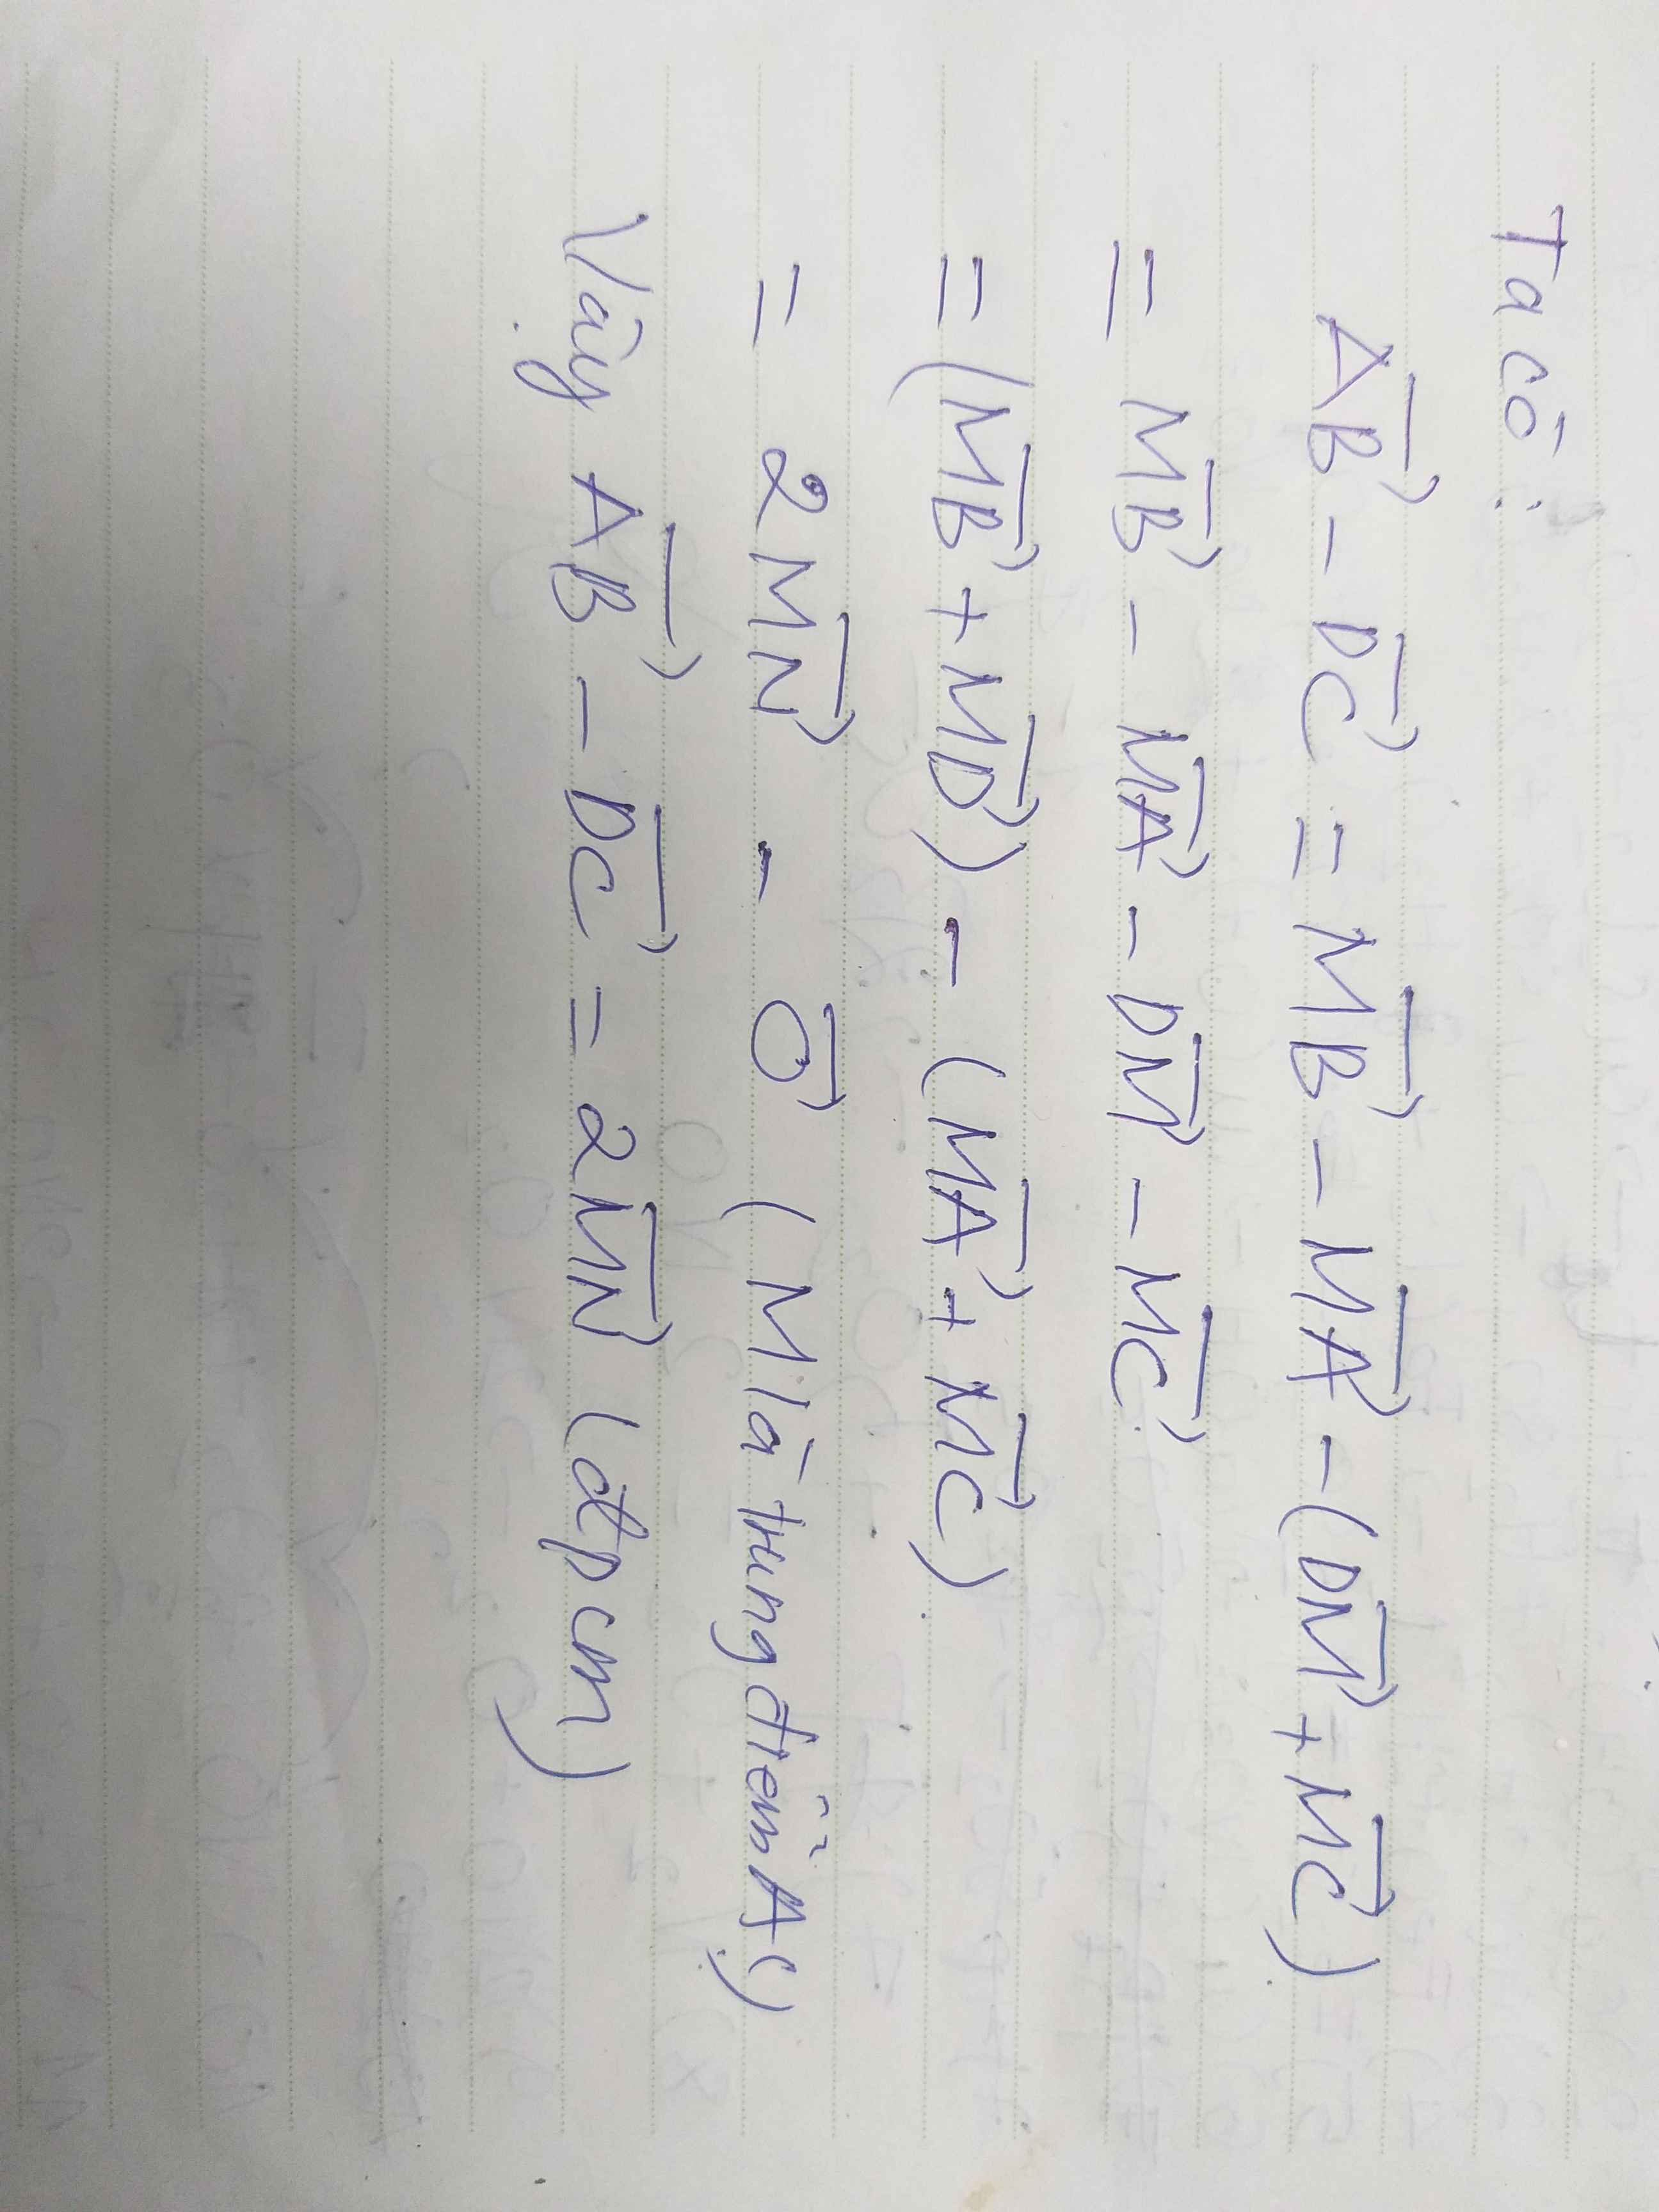 Ta có:
$\overrightarrow{AB} - \overrightarrow{DC} = \overrightarrow{MB} - \overrightarrow{MA} - (\overrightarrow{DM} + \overrightarrow{MC})$
$= \overrightarrow{MB} - \overrightarrow{MA} - \overrightarrow{DM} - \overrightarrow{MC}$
$= (\overrightarrow{MB} + \overrightarrow{MD}) - (\overrightarrow{MA} + \overrightarrow{MC})$
$= 2\overrightarrow{MN} - \overrightarrow{0}$ (M là trung điểm AC)
Vậy $\overrightarrow{AB} - \overrightarrow{DC} = 2\overrightarrow{MN}$ (đpcm)